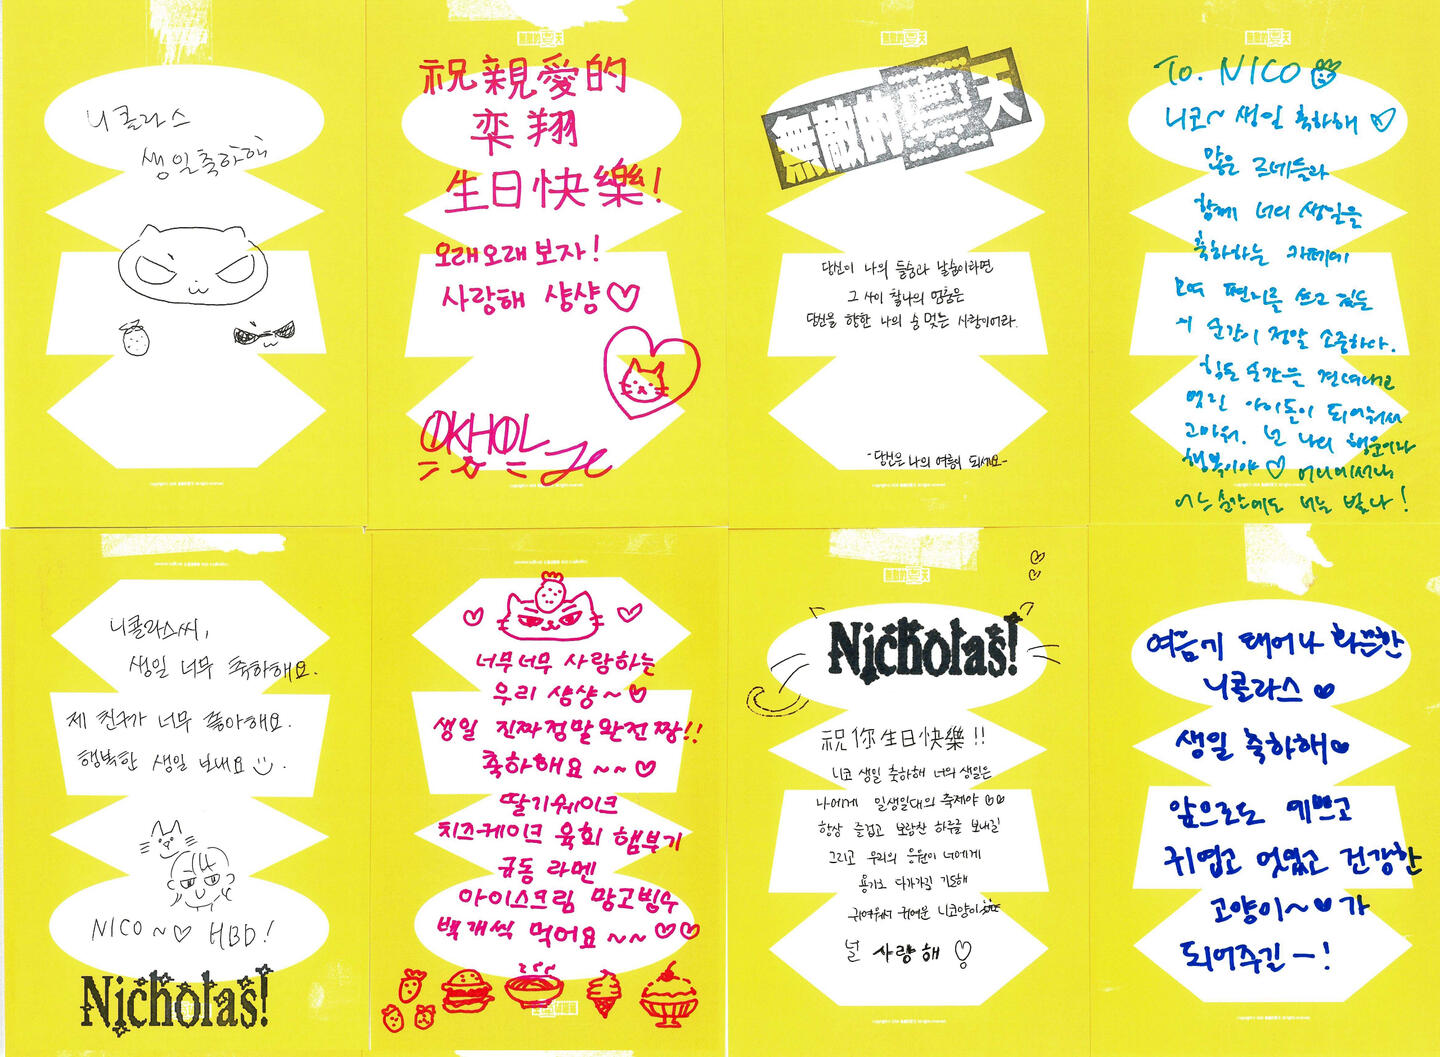 니콜라스
생일축하해
祝親愛的
奕翔
生日快樂!
오래오래 보자!
사랑해 샹샹♡
無敵的夏天
당신이 나의 들숨과 날숨이라면
그 사이 찰나의 멈춤은
당신을 향한 나의 숨 멎는 사랑이어라.
-당신은 나의 여름이 되세요-
To. NICO
니코~ 생일 축하해 ♡
많은 르네들과
함께 너의 생일을
축하하는 카페에
모여 편지를 쓰고 있는
이 순간이 정말 소중하다.
힘든 순간을 견뎌내고
멋진 아이돌이 되어줘서
고마워. 넌 나의 행운이자
행복이야 ♡ 어디에서나
어느 순간에도 너는 빛나!
니콜라스씨,
생일 너무 축하해요.
제 친구가 너무 좋아해요.
행복한 생일 보내요
NICO~♡ HBD!
Nicholas!
너무너무 사랑하는
우리 샹샹~♡
생일 진짜정말완전짱!!
축하해요~~♡
딸기케이크
치즈케이크 육회 햄부기
규동 라멘
아이스크림 망고빙수
백개씩 먹어요~~♡♡
Nicholas!
祝你生日快樂!!
니코 생일 축하해 너의 생일은
나에게 일생일대의 축제야 ♡♡
항상 즐겁고 보람찬 하루를 보내길
그리고 우리의 응원이 너에게
용기로 다가가길 기도해
귀여워서 귀여운 니코양이
널 사랑해 ♡
여름기 태어나 화쁜한
니콜라스 ♥
생일 축하해♥
앞으로도 예쁘고
귀엽고 멋있고 건강한
고양이~♥가
되어주길-!